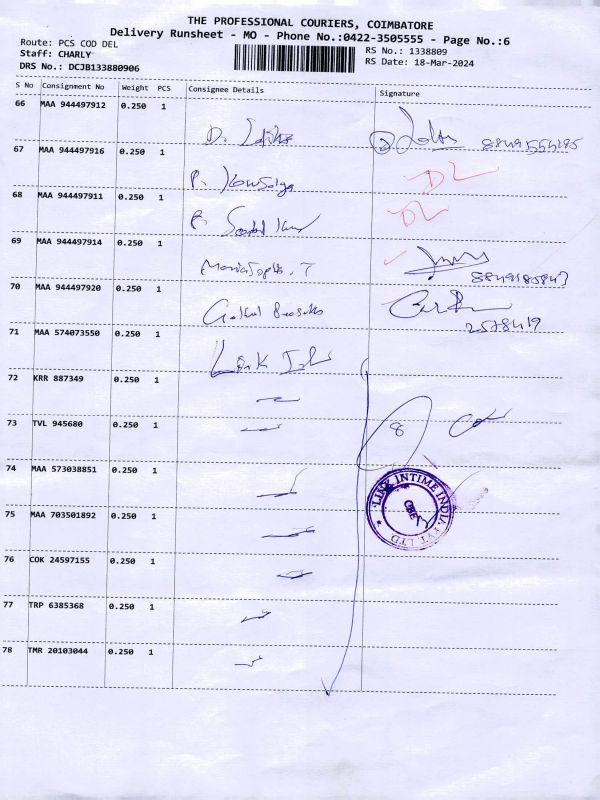 THE PROFESSIONAL COURIERS, COIMBATORE
Delivery Runsheet - MO - Phone No.:0422-3505555 - Page No.:6
Route: PCS COD DEL
RS No.: 1338809
Staff: CHARLY
RS Date: 18-Mar-2024
DRS No.: DCJB133880906
S No Consignment No Weight PCS Consignee Details Signature
66 MAA 944497912 0.250 1
67 MAA 944497916 0.250 1 DL
68 MAA 944497911 0.250 1 DL
69 MAA 944497914 0.250 1
70 MAA 944497920 0.250 1
2578419
71 MAA 574073550 0.250 1
72 KRR 887349 0.250 1
73 TVL 945680 0.250 1 8
74 MAA 573038851 0.250 1
LINK INTIME INDIA PVT. LTD
CBE
75 MAA 703501892 0.250 1
76 COK 24597155 0.250 1
77 TRP 6385368 0.250 1
78 TMR 20103044 0.250 1